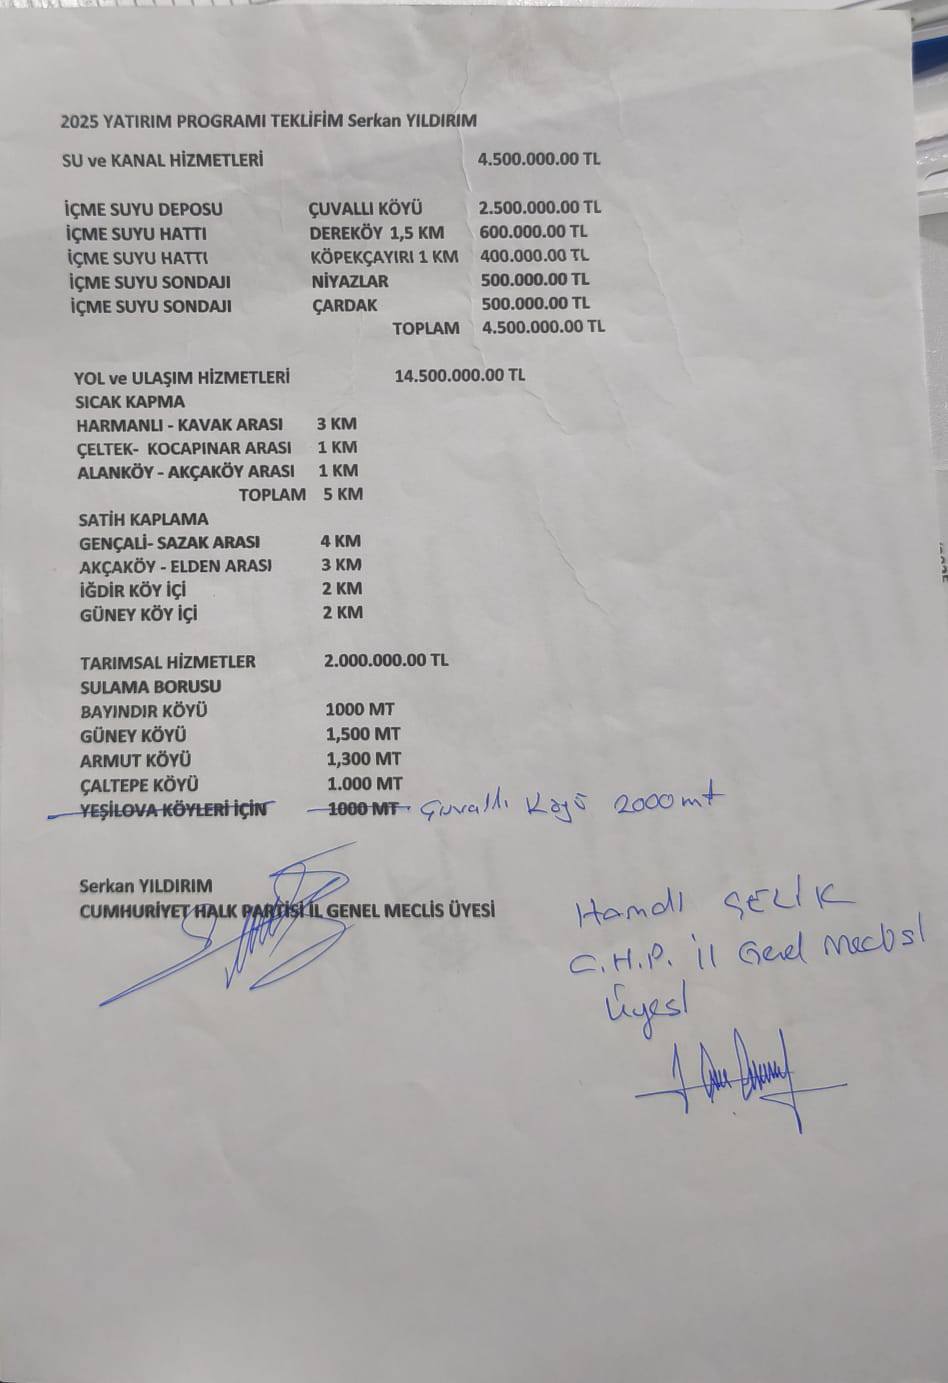 2025 YATIRIM PROGRAMI TEKLİFİM Serkan YILDIRIM
SU ve KANAL HİZMETLERİ 4.500.000.00 TL
İÇME SUYU DEPOSU ÇUVALLI KÖYÜ 2.500.000.00 TL
İÇME SUYU HATTI DEREKÖY 1,5 KM 600.000.00 TL
İÇME SUYU HATTI KÖPEKÇAYIRI 1 KM 400.000.00 TL
İÇME SUYU SONDAJI NİYAZLAR 500.000.00 TL
İÇME SUYU SONDAJI ÇARDAK 500.000.00 TL
TOPLAM 4.500.000.00 TL
YOL ve ULAŞIM HİZMETLERİ 14.500.000.00 TL
SICAK KAPMA
HARMANLI - KAVAK ARASI 3 KM
ÇELTEK- KOCAPINAR ARASI 1 KM
ALANKÖY - AKÇAKÖY ARASI 1 KM
TOPLAM 5 KM
SATİH KAPLAMA
GENÇALİ- SAZAK ARASI 4 KM
AKÇAKÖY - ELDEN ARASI 3 KM
İĞDİR KÖY İÇİ 2 KM
GÜNEY KÖY İÇİ 2 KM
TARIMSAL HİZMETLER 2.000.000.00 TL
SULAMA BORUSU
BAYINDIR KÖYÜ 1000 MT
GÜNEY KÖYÜ 1,500 MT
ARMUT KÖYÜ 1,300 MT
ÇALTEPE KÖYÜ 1.000 MT
YEŞİLOVA KÖYLERİ İÇİN 1000 MT Çuvallı Köyü 2000 mt
Serkan YILDIRIM
CUMHURİYET HALK PARTİSİ İL GENEL MECLİS ÜYESİ
Hamdi ÇELİK
C.H.P. İl Genel Meclisi
Üyesi